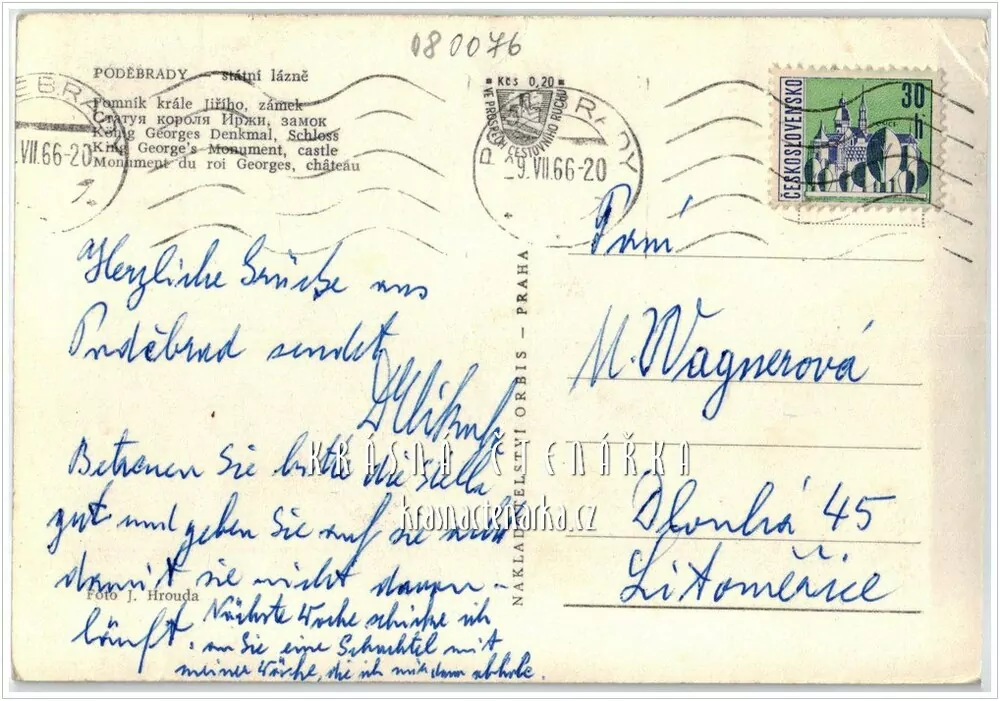 080076
PODĚBRADY – státní lázně
Pomník krále Jiřího, zámek
Статуя короля Иржи, замок
König Georges Denkmal, Schloss
King George's Monument, castle
Monument du roi Georges, château
VII.66-20
Kčs 0,20
VE PROSPĚCH CESTOVNÍHO RUCHU
-9.VII.66-20
ČESKOSLOVENSKO
30
h
Herzliche Grüsse aus
Poděbrad sendet
Betreuen Sie bitte die Stella
gut und geben Sie auf sie acht
damit sie nicht davon-
läuft.
Nächste Woche schicke ich
an Sie eine Schachtel mit
meiner Wäsche, die ich mir dann abhole.
Foto J. Hrouda
NAKLADATELSTVÍ ORBIS – PRAHA
Paní
M. Wagnerová
Dlouhá 45
Litoměřice
KRÁSNÁ ČTENÁŘKA
krasnactenarka.cz